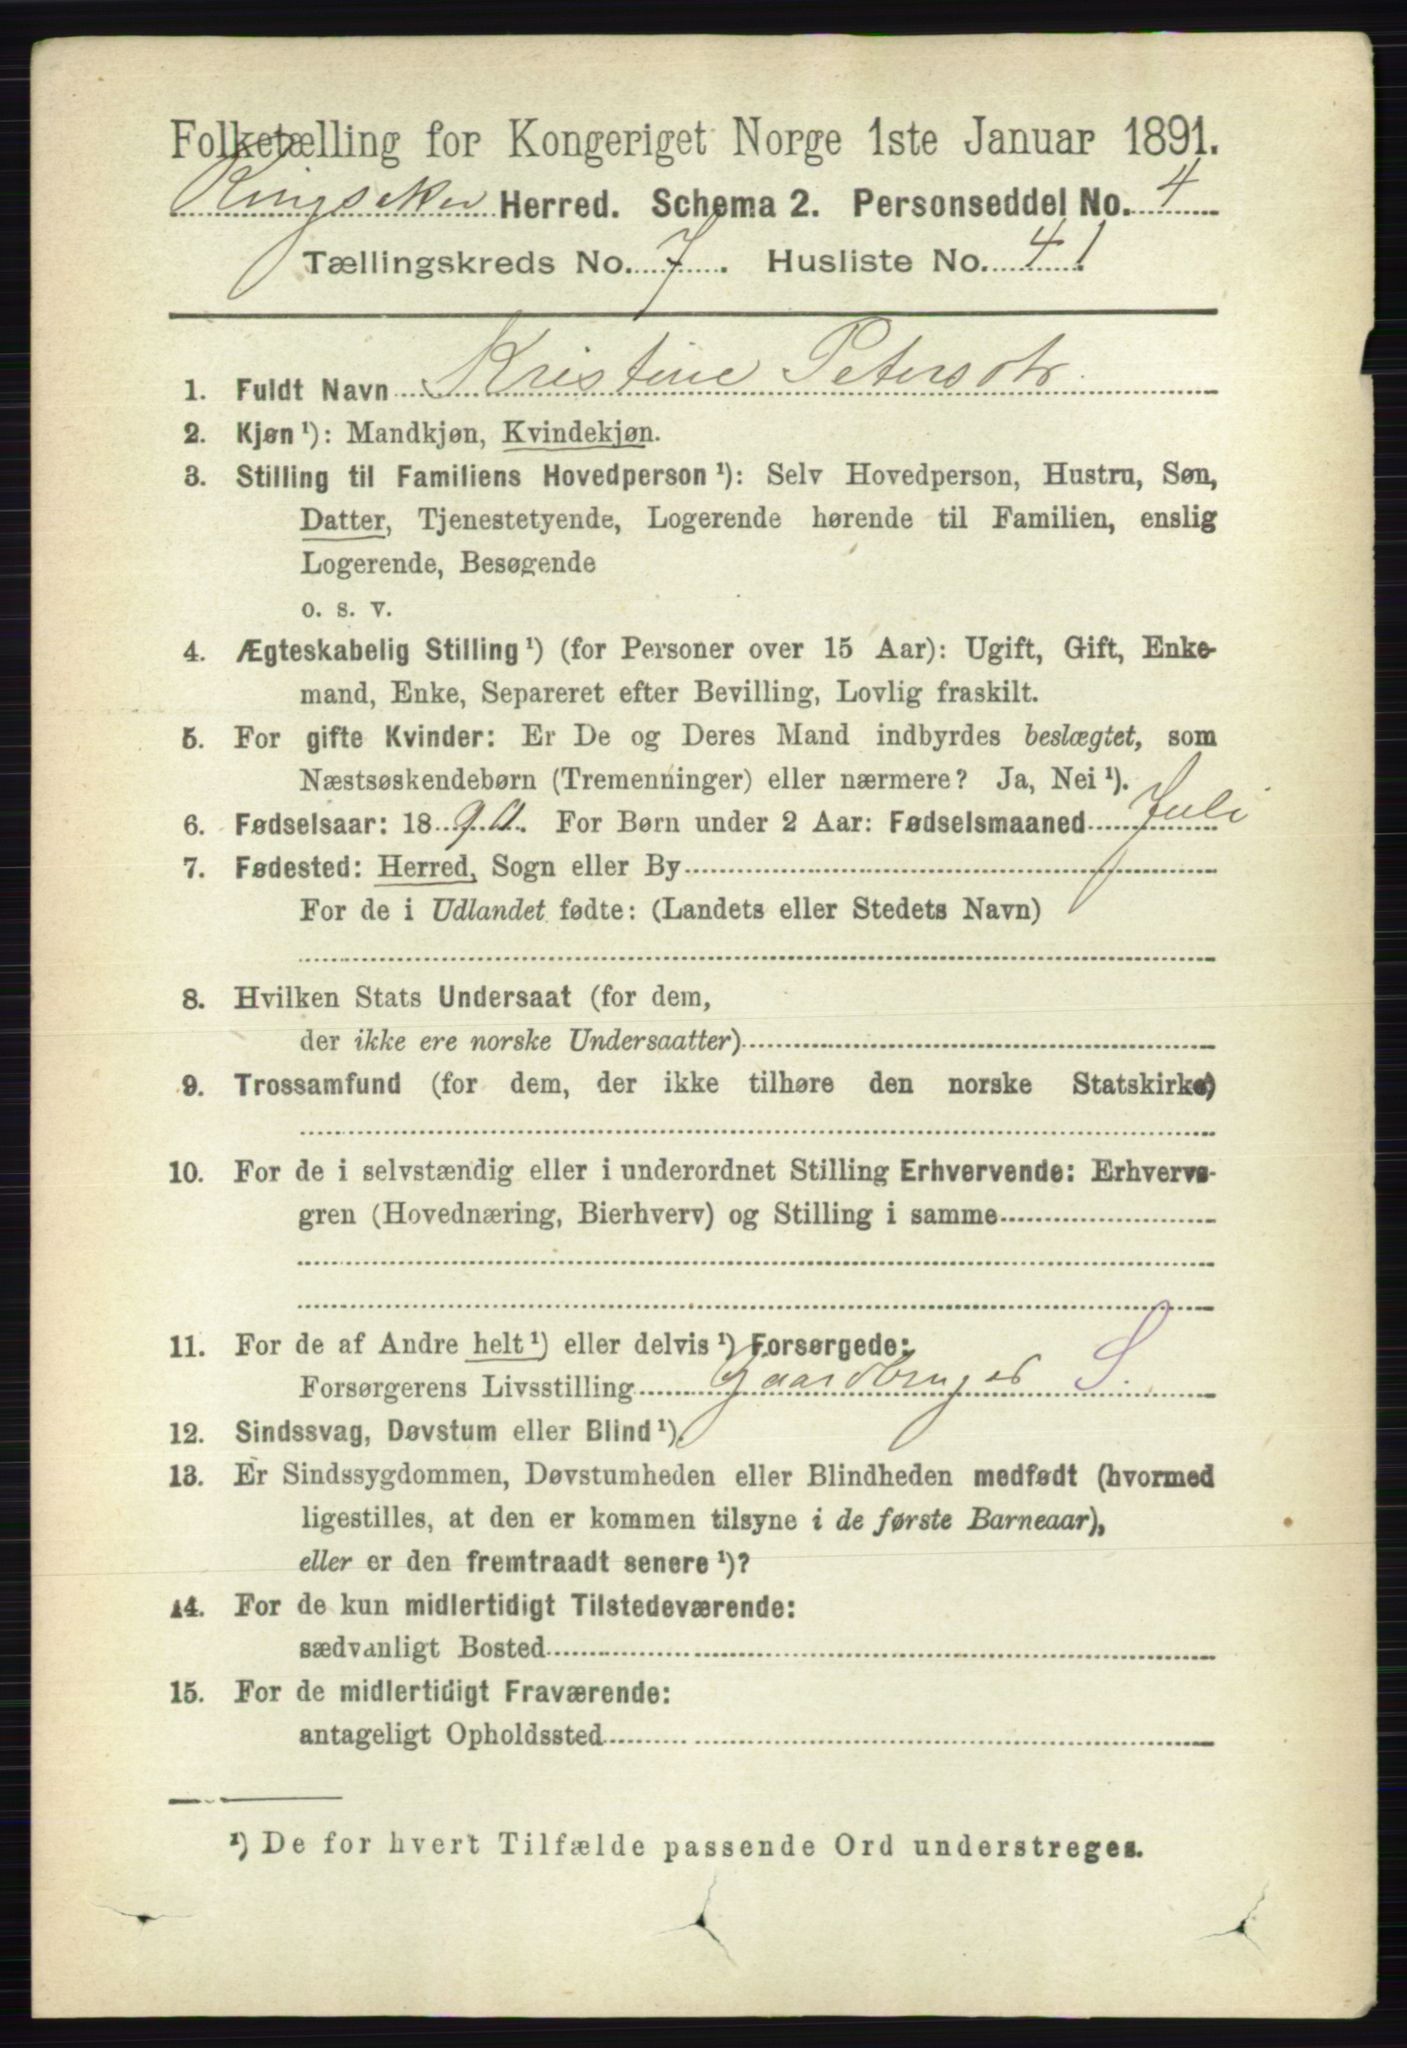 Folketælling for Kongeriget Norge 1ste Januar 1891.
Ringsaker Herred. Schema 2. Personseddel No. 4
Tællingskreds No. 7. Husliste No. 41
1. Fuldt Navn Kristine Petersdtr.
2. Kjøn ¹): Mandkjøn, Kvindekjøn.
3. Stilling til Familiens Hovedperson ¹): Selv Hovedperson, Hustru, Søn,
Datter, Tjenestetyende, Logerende hørende til Familien, enslig
Logerende, Besøgende
o. s. v.
4. Ægteskabelig Stilling ¹) (for Personer over 15 Aar): Ugift, Gift, Enke-
mand, Enke, Separeret efter Bevilling, Lovlig fraskilt.
5. For gifte Kvinder: Er De og Deres Mand indbyrdes beslægtet, som
Næstsøskendebørn (Tremenninger) eller nærmere? Ja, Nei ¹).
6. Fødselsaar: 1890. For Børn under 2 Aar: Fødselsmaaned Juli
7. Fødested: Herred, Sogn eller By
For de i Udlandet fødte: (Landets eller Stedets Navn)
8. Hvilken Stats Undersaat (for dem,
der ikke ere norske Undersaatter)
9. Trossamfund (for dem, der ikke tilhøre den norske Statskirke)
10. For de i selvstændig eller i underordnet Stilling Erhvervende: Erhvervs-
gren (Hovednæring, Bierhverv) og Stilling i samme
11. For de af Andre helt ¹) eller delvis ¹) Forsørgede:
Forsørgerens Livsstilling Gaardbruger S.
12. Sindssvag, Døvstum eller Blind ¹).
13. Er Sindssygdommen, Døvstumheden eller Blindheden medfødt (hvormed
ligestilles, at den er kommen tilsyne i de første Barneaar),
eller er den fremtraadt senere ¹)?
14. For de kun midlertidigt Tilstedeværende:
sædvanligt Bosted
15. For de midlertidigt Fraværende:
antageligt Opholdssted
¹) De for hvert Tilfælde passende Ord understreges.